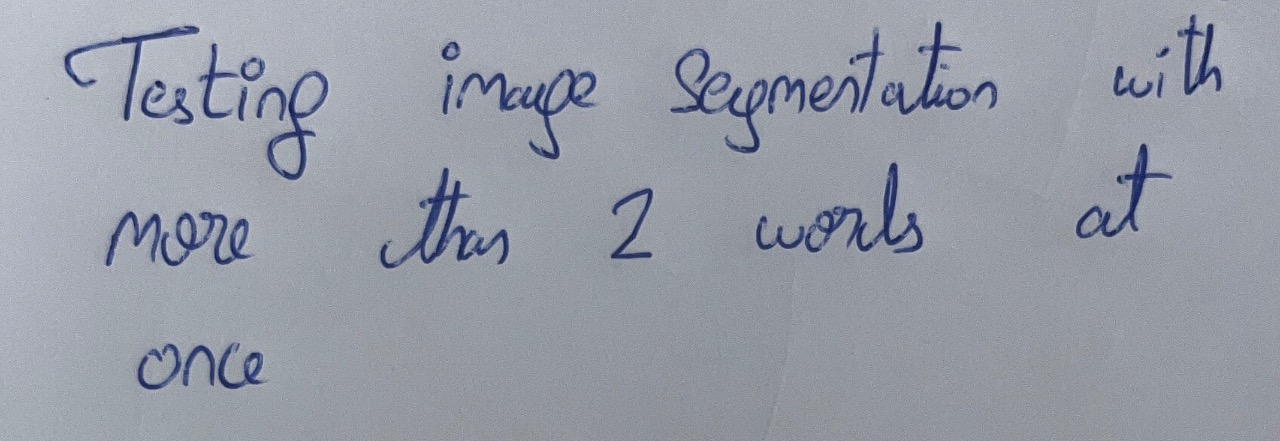 Testing image Segmentation with
more than 2 words at
once